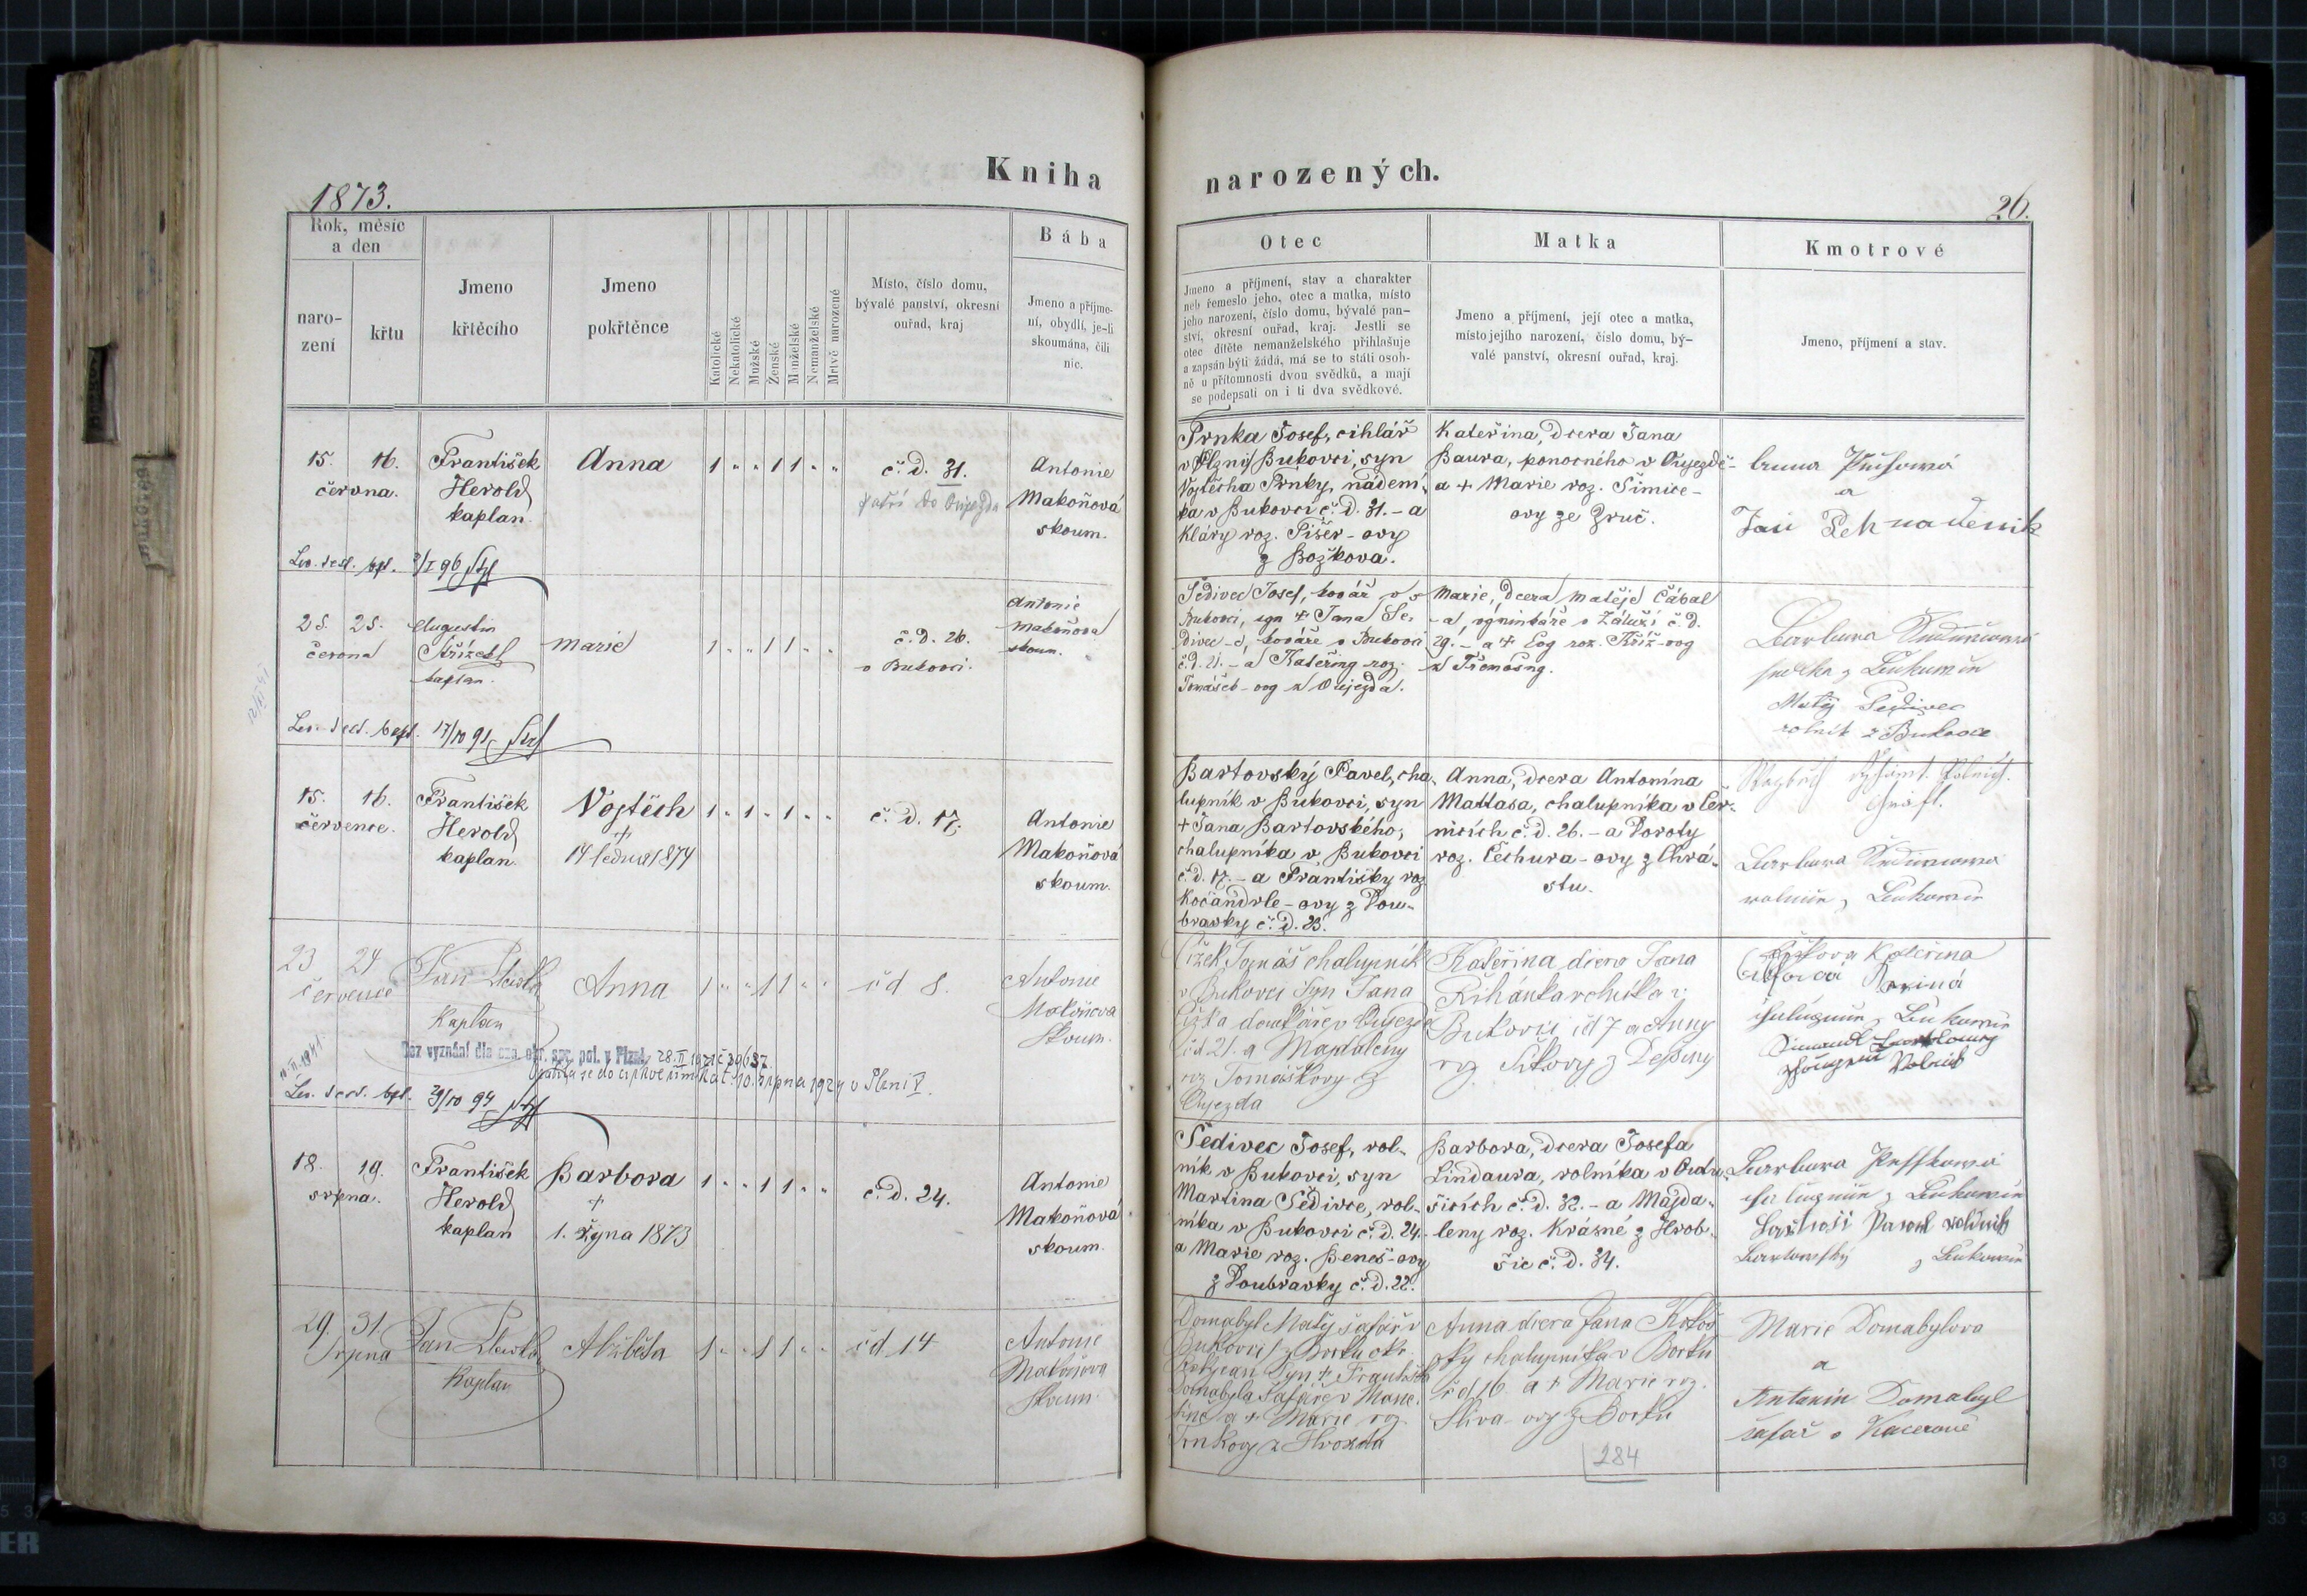 Kniha
narozených.
1873.
26.
Rok, měsíc
a den
naro-
zení
křtu
Jmeno
křtěcího
Jmeno
pokřtěnce
Katolické
Nekatolické
Mužské
Ženské
Manželské
Nemanželské
Mrtvě narozené
Místo, číslo domu,
bývalé panství, okresní
ouřad, kraj
Bába
Jmeno a příjme-
ní, obydlí, je-li
skoumána, čili
nic.
Otec
Jmeno a příjmení, stav a charakter
neb řemeslo jeho, otec a matka, místo
jeho narození, číslo domu, bývalé pan-
ství, okresní ouřad, kraj. Jestli se
otec dítěte nemanželského přihlašuje
a zapsán býti žádá, má se to státi osob-
ně u přítomnosti dvou svědků, a mají
se podepsati on i ti dva svědkové.
Matka
Jmeno a příjmení, její otec a matka,
místo jejího narození, číslo domu, bý-
valé panství, okresní ouřad, kraj.
Kmotrové
Jmeno, příjmení a stav.
15. 16.
června.
František
Herold
kaplan.
Anna
1 " " 1 1 " "
č. d. 31.
patří do Oujezda
Antonie
Makoňová
skoum.
Prnka Josef, cihlář
v Plzni Bukovci, syn
Vojtěcha Prnky, nádení-
ka v Bukovci č. d. 31. - a
Kláry roz. Pišer-ovy
z Božkova.
Kateřina, dcera Jana
Baura, ponocného v Oujezdě
a + Marie roz. Simice-
ovy ze Zruč.
a
Jan Peh nadenik
3/I 96
25. 25.
června
Augustin
Střízek
kaplan.
Marie
1 " " 1 1 " "
č. d. 26.
v Bukovci.
Antonie
Makoňova
skoum.
Šedivec Josef, kovář v
Bukovci, syn + Jana Še-
divec-a, kováře v Bukovci
č. d. 21. - a Kateřiny roz.
Tomášek-ovy z Oujezda.
Marie, dcera Matěje Čábal
-a, výminkáře v Záluží č. d.
29. - a + Evy roz. Kříž-ovy
z Třemošny.
Barbora
Matěj Šedivec
rolník z Bukovce
17/10 91
15. 16.
července.
František
Herold
kaplan.
Vojtěch
+
14 ledna 1874
1 " 1 " 1 " "
č. d. 17.
Antonie
Makoňová
skoum.
Bartovský Pavel, cha-
lupník v Bukovci, syn
+ Jana Bartovského,
chalupníka v Bukovci
č. d. 17. - a Františky roz.
Kočandrle-ovy z Dou-
bravky č. d. 23.
Anna, dcera Antonína
Mattasa, chalupníka v Čer-
nicích č. d. 26. - a Doroty
roz. Čechura-ovy z Chrá-
stu.
Barbora
23 24
července
Jan
Kaplan
Anna
1 " " 1 1 " "
čd 8.
Antonie
Makoňova
Skoum.
Čížek Tomáš chalupník
v Bukovci Syn Jana
Čížka domkáře v Oujezdě
čd 21. a Majdaleny
roz Tomáškovy z
Oujezda
Kateřina dcera Jana
Řihánka rolníka v
Bukovci čd 7 a Anny
roz Síkovy z Dejšiny
Kateřina
Bez vyznání dle ozn. okr. spr. pol. v Plzni 28. II
10. srpna 1924 v Plzni V.
29/10 94
18. 19.
srpna.
František
Herold
kaplan
Barbora
+
1. Října 1873
1 " " 1 1 " "
č. d. 24.
Antonie
Makoňová
skoum.
Šedivec Josef, rol-
ník v Bukovci, syn
Martina Šedivce, rol-
níka v Bukovci č. d. 24. -
a Marie roz. Beneš-ovy
z Doubravky č. d. 22.
Barbora, dcera Josefa
Lindaura, rolníka v Dru-
šicích č. d. 32. - a Majda-
leny roz. Krásné z Hrob-
šic č. d. 34.
Barbora
29. 31.
Srpna
Jan
Kaplan
Alžběta
1 " " 1 1 " "
čd 14
Antonie
Makoňova
Skoum.
Domabyl Matěj šafář v
Bukovci z Borku okr.
Rokycan Syn + Františka
Domabyla šafáře v Mane-
tíně a + Marie roz.
Trnkovy z Hvozda
Anna dcera Jana
chalupníka v Borku
čd 16. a + Marie roz.
Sliva-ovy z Borku
284
Marie Domabylova
a
Antonin Domabyl
šafář v Kacerově